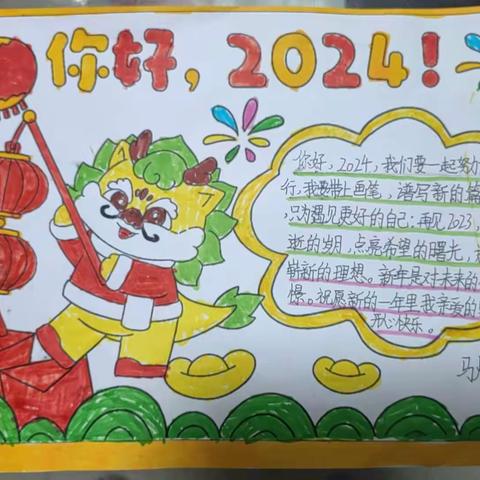 你好，2024！
你好，2024，我们要一起努力
行，我要带上画笔，谱写新的篇
，只为遇见更好的自己；再见2023，
逝的岁月，点亮希望的曙光，
崭新的理想。新年是对未来的
憬。祝愿新的一年里我亲爱的
开心快乐。
马